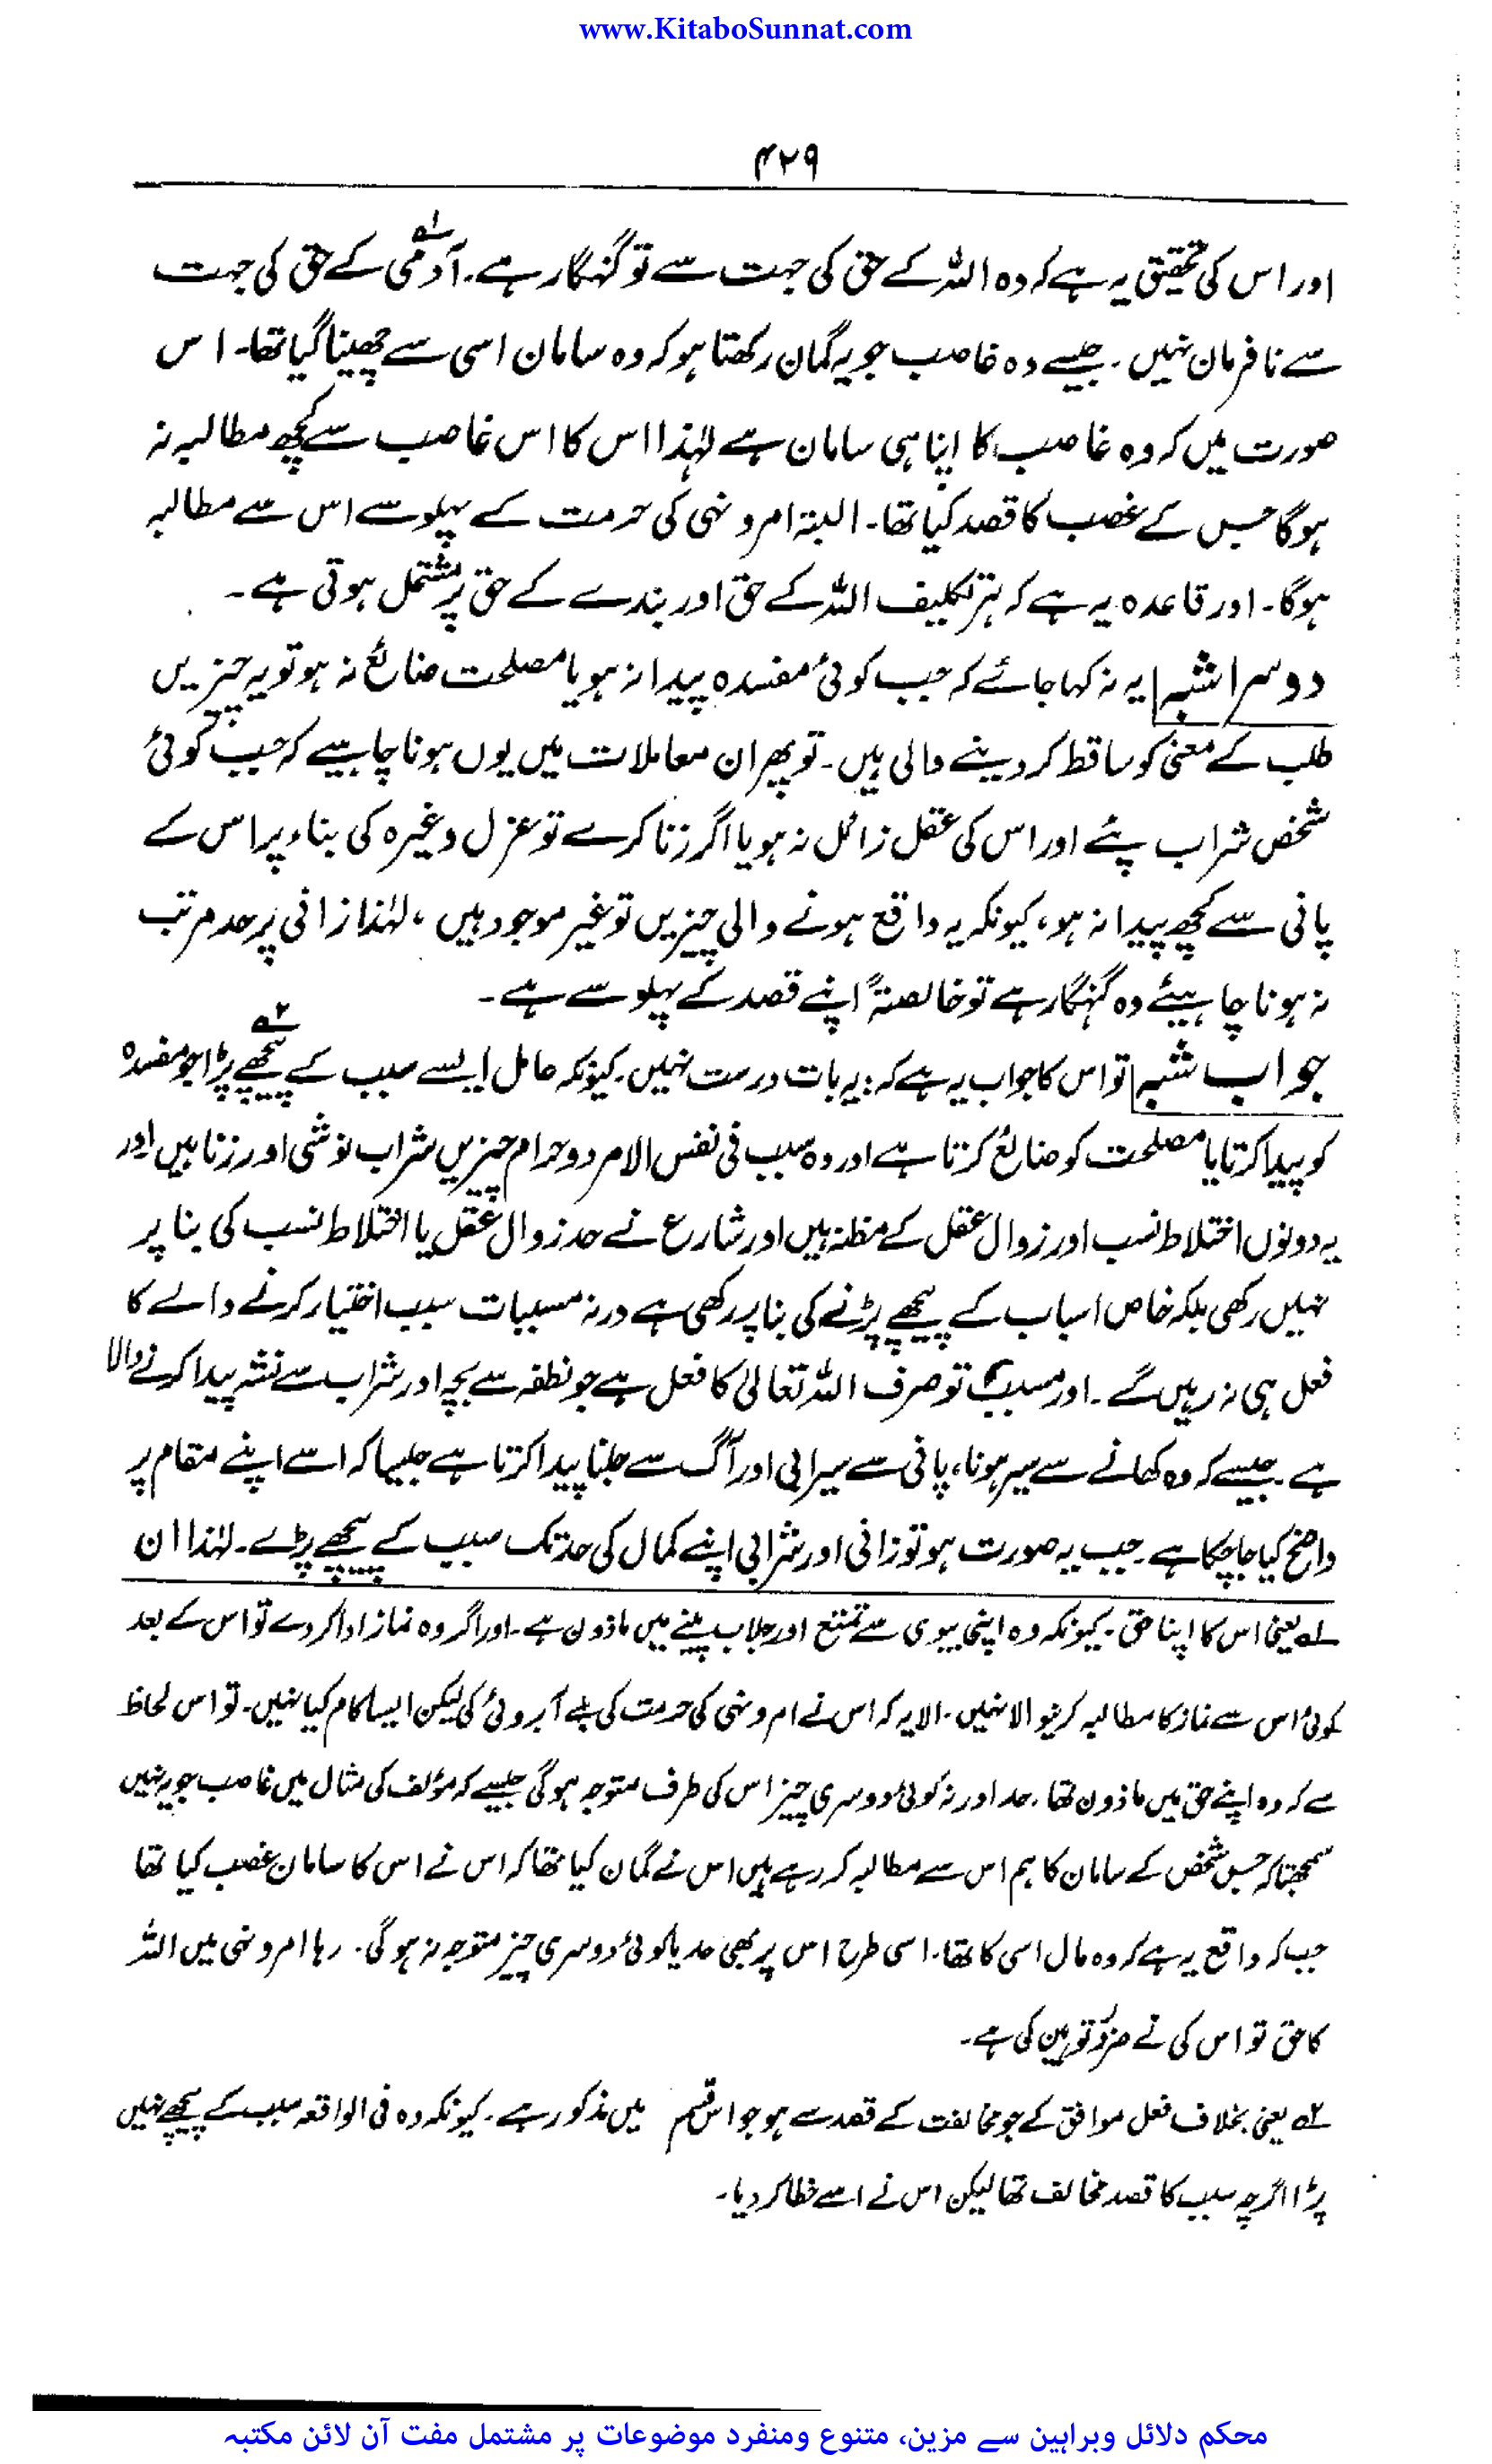 www.KitaboSunnat.com
۴۲۹
اور اس کی تحقیق یہ ہے کہ وہ اللہ کے حق کی جہت سے تو گنہگار ہے۔ آدمی۱؎ کے حق کی جہت
سے نافرمان نہیں۔ جیسے وہ غاصب جو یہ گمان رکھتا ہو کہ وہ سامان اسی سے چھینا گیا تھا۔ اس
صورت میں کہ وہ غاصب کا اپنا ہی سامان ہے لہٰذا اس کا اس غاصب سے کچھ مطالبہ نہ
ہوگا جس کے غصب کا قصد کیا تھا۔ البتہ امر و نہی کی حرمت کے پہلو سے اس سے مطالبہ
ہوگا۔ اور قاعدہ یہ ہے کہ ہر تکلیف اللہ کے حق اور بندے کے حق پر مشتمل ہوتی ہے۔
دوسرا شبہ یہ نہ کہا جائے کہ جب کوئی مفسدہ پیدا نہ ہو یا مصلحت ضائع نہ ہو تو یہ چیزیں
طلب کے معنی کو ساقط کر دینے والی ہیں۔ تو پھر ان معاملات میں یوں ہونا چاہیے کہ جب کوئی
شخص شراب پئے اور اس کی عقل زائل نہ ہو یا اگر زنا کرے تو عزل وغیرہ کی بناء پر اس کے
پانی سے کچھ پیدا نہ ہو، کیونکہ یہ واقع ہونے والی چیزیں تو غیر موجود ہیں، لہٰذا زانی پر حد مرتب
نہ ہونا چاہیئے وہ گنہگار ہے تو خالصتہً اپنے قصد کے پہلو سے ہے۔
جواب شبہ تو اس کا جواب یہ ہے کہ: یہ بات درست نہیں۔ کیونکہ عامل ایسے سبب کے پیچھے۲؎ پڑا جو مفسدہ
کو پیدا کرتا یا مصلحت کو ضائع کرتا ہے اور وہ سبب فی نفس الامر دو حرام چیزیں شراب نوشی اور زنا ہیں اور
یہ دونوں اختلاط نسب اور زوال عقل کے مظنہ ہیں اور شارع نے حد زوال عقل یا اختلاط نسب کی بنا پر
نہیں رکھی بلکہ خاص اسباب کے پیچھے پڑنے کی بنا پر رکھی ہے ورنہ مسببات سبب اختیار کرنے والے کا
فعل ہی نہ رہیں گے۔ اور مسبب تو صرف اللہ تعالیٰ کا فعل ہے جو نطفہ سے بچہ اور شراب سے نشہ پیدا کرنے والا
ہے۔ جیسے کہ وہ کھانے سے سیر ہونا، پانی سے سیرابی اور آگ سے جلنا پیدا کرتا ہے جیسا کہ اسے اپنے مقام پر
واضح کیا جاچکا ہے۔ جب یہ صورت ہو تو زانی اور شرابی اپنے کمال کی حد تک سبب کے پیچھے پڑے۔ لہٰذا ان
۱؎ یعنی اس کا اپنا حق۔ کیونکہ وہ اپنی بیوی سے تمتع اور جلاب پینے میں ماذون ہے۔ اور اگر وہ نماز ادا کر دے تو اس کے بعد
کوئی اس سے نماز کا مطالبہ کرنیوالا نہیں۔ الا یہ کہ اس نے امر و نہی کی حرمت کی بے آبروئی کی لیکن ایسا کام کیا نہیں۔ تو اس لحاظ
سے کہ وہ اپنے حق میں ماذون تھا، حد اور نہ کوئی دوسری چیز اس کی طرف متوجہ ہوگی جیسے کہ مؤلف کی مثال میں غاصب جو یہ نہیں
سمجھتا کہ جس شخص کے سامان کا ہم اس سے مطالبہ کر رہے ہیں اس نے گمان کیا تھا کہ اس نے اس کا سامان غصب کیا تھا
جب کہ واقع یہ ہے کہ وہ مال اسی کا تھا۔ اسی طرح اس پر بھی حد یا کوئی دوسری چیز متوجہ نہ ہوگی۔ رہا امر و نہی میں اللہ
کا حق تو اس کی نے ضرور توہین کی ہے۔
۲؎ یعنی بخلاف فعل موافق کے جو مخالفت کے قصد سے ہو جو اس قسم میں مذکور ہے۔ کیونکہ وہ فی الواقعہ سبب کے پیچھے نہیں
پڑا اگرچہ سبب کا قصد مخالف تھا لیکن اس نے اسے خطا کر دیا۔
محکم دلائل وبراہین سے مزین، متنوع ومنفرد موضوعات پر مشتمل مفت آن لائن مکتبہ